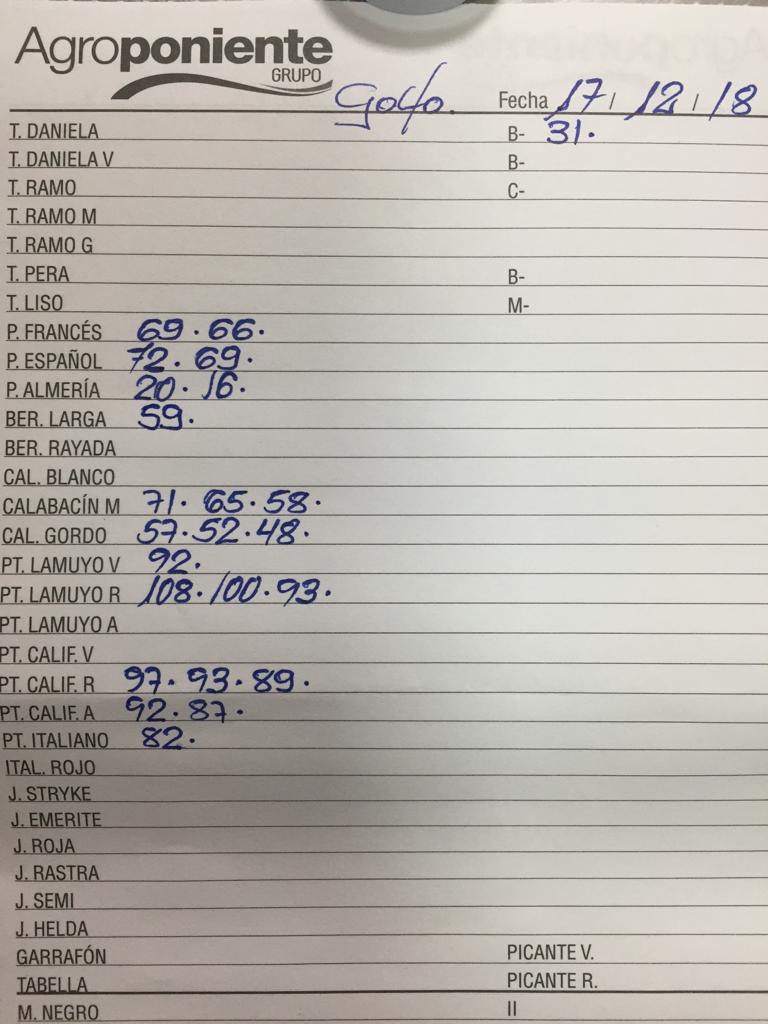 Agroponiente
GRUPO
Golfo. Fecha 17/12/18
T. DANIELA B- 31.
T. DANIELA V B-
T. RAMO C-
T. RAMO M
T. RAMO G
T. PERA B-
T. LISO M-
P. FRANCÉS 69. 66.
P. ESPAÑOL 72. 69.
P. ALMERÍA 20. 16.
BER. LARGA 59.
BER. RAYADA
CAL. BLANCO
CALABACÍN M 71. 65. 58.
CAL. GORDO 57. 52. 48.
PT. LAMUYO V 92.
PT. LAMUYO R 108. 100. 93.
PT. LAMUYO A
PT. CALIF. V
PT. CALIF. R 97. 93. 89.
PT. CALIF. A 92. 87.
PT. ITALIANO 82.
ITAL. ROJO
J. STRYKE
J. EMERITE
J. ROJA
J. RASTRA
J. SEMI
J. HELDA
GARRAFÓN PICANTE V.
TABELLA PICANTE R.
M. NEGRO II